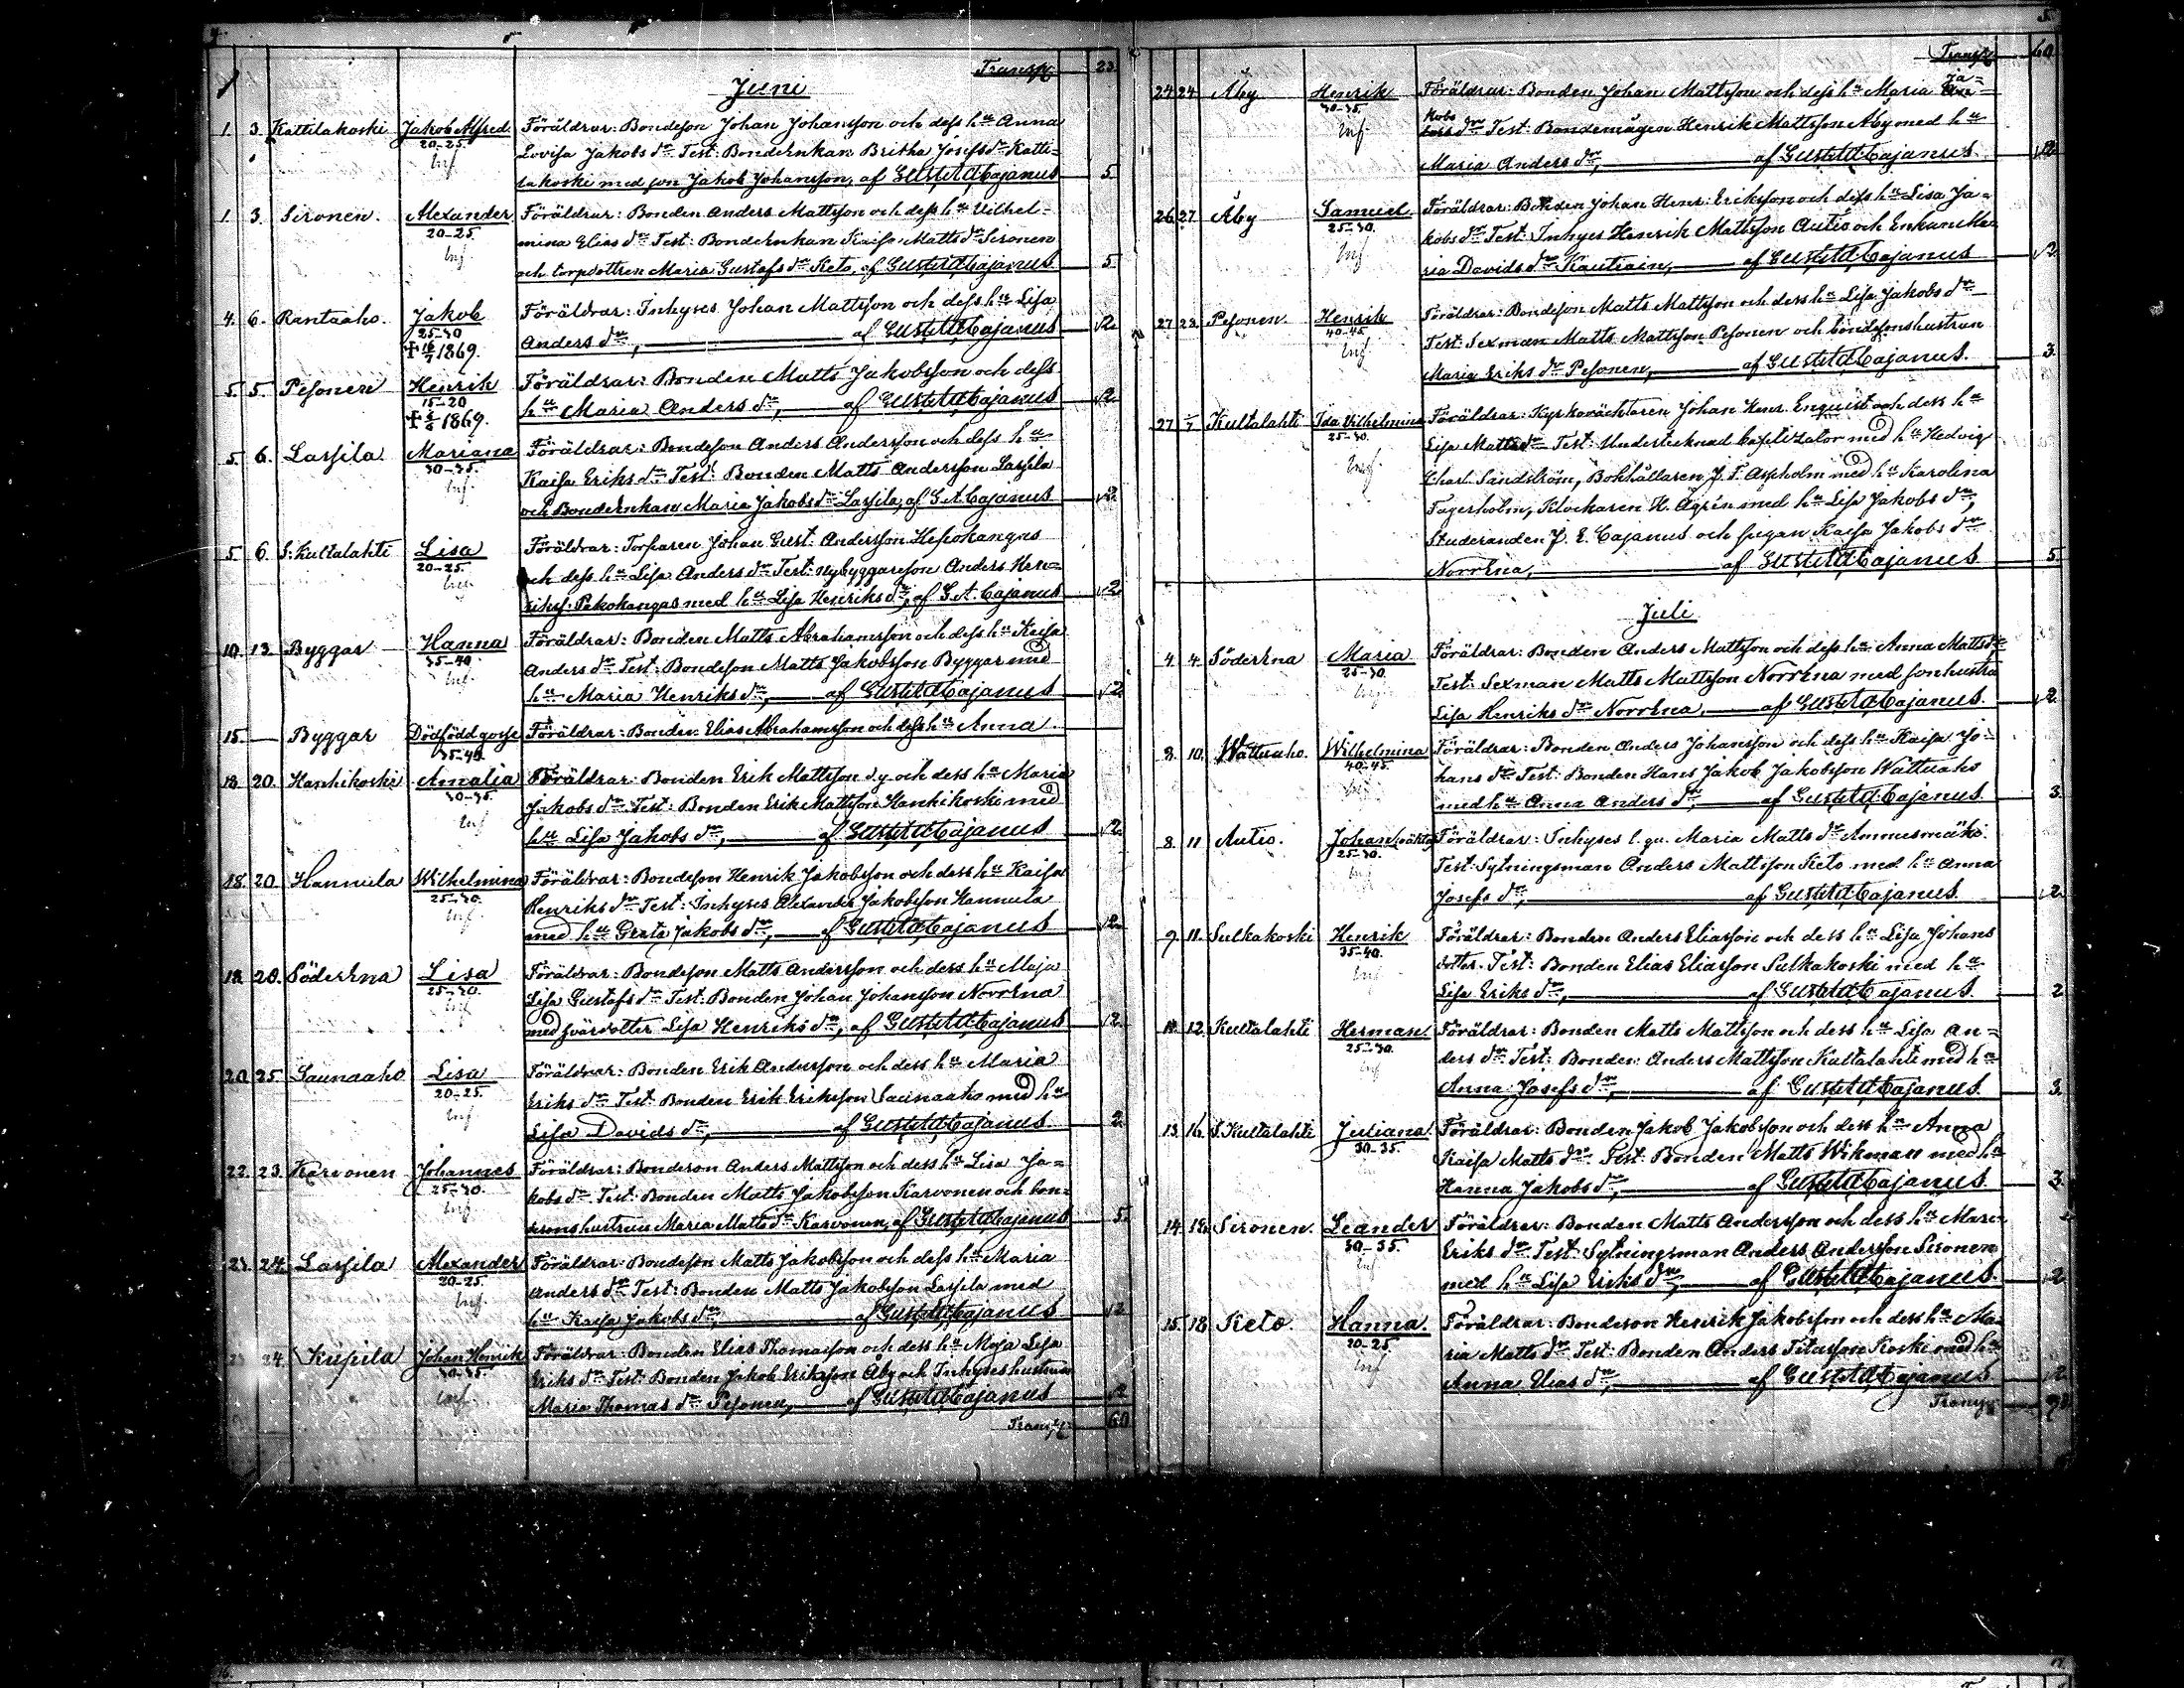 4.
Transp. 23.
Juni
1. 3. Kattilakoski Jakob Alfred Föräldrar: Bondeson Johan Johansson och dess hu Anna
20-25. Lovisa Jakobs dr Test: Bondeenkan Britha Josefs dr Katti-
Inf lakoski med son Jakob Johansson, af Gust. Ad. Cajanus 5
1. 3. Sironen. Alexander Föräldrar: Bonden Anders Mattsson och dess hu Vilhel-
20-25. mina Elias dr Test: Bondeenkan Kaisa Matts dr Sironen
Inf och torpdottren Maria Gustafs dr Keto, af Gust. Ad. Cajanus 5
4. 6. Rantaaho. Jakob Föräldrar: Inhyses Johan Mattsson och dess hu Lisa
25-30 Anders dr, af Gust. Ad. Cajanus 2.
† 16/7 1869.
5. 5. Pesonen Henrik Föräldrar: Bonden Matts Jakobsson och dess
15-20 hu Maria Anders dr, af Gust. Ad. Cajanus 2
† 1869.
5. 6. Lassila Mariana Föräldrar: Bondeson Anders Andersson och dess hu
30-35. Kaisa Eriks dr Test: Bonden Matts Andersson Lassila
Inf och Bondeenkan Maria Jakobs dr Lassila, af G. A. Cajanus 2.
5. 6. S: Kultalahti Lisa Föräldrar: Torparen Johan Gust: Andersson Kepokangas
20-25. och dess hu Lisa Anders dr Test: nybyggareson Anders Hen-
Inf rikss. Pekokangas med hu Lisa Henriks dr, af G. A. Cajanus 2
10. 13. Byggar Hanna Föräldrar: Bonden Matts Abrahamsson och dess hu Kaisa
35-40. Anders dr Test: Bondeson Matts Jakobsson Byggar med
Inf. hu Maria Henriks dr, af Gust. Ad. Cajanus 2
15. — Byggar Dödfödd gosse Föräldrar: Bonden Elias Abrahamsson och dess hu Anna
35-40.
18. 20. Hanhikoski Amalia Föräldrar: Bonden Erik Mattsson d.y. och dess hu Maria
30-35. Jakobs dr Test: Bonden Erik Mattsson Hanhikoski med
Inf hu Lisa Jakobs dr, af Gust. Ad. Cajanus 2
18. 20. Hannula Wilhelmina Föräldrar: Bondeson Henrik Jakobsson och dess hu Kaisa
25-30. Henriks dr Test: Inhyses Alexander Jakobsson Hannula
Inf. med hu Greta Jakobs dr, af Gust. Ad. Cajanus 2
18. 20. Söderena Lisa Föräldrar: Bondeson Matts Andersson och dess hu Maja
25-30. Lisa Gustafs dr Test: Bonden Johan Johansson Norrena
Inf med svärdotter Lisa Henriks dr, af Gust. Ad. Cajanus 2.
20. 25. Saunaaho Lisa Föräldrar: Bonden Erik Andersson och dess hu Maria
20-25. Eriks dr Test: Bonden Erik Eriksson Saunaaho med hu
Inf Lisa Davids dr, af Gust. Ad. Cajanus 2
22. 23. Karvonen Johannes Föräldrar: Bondeson Anders Mattsson och dess hu Lisa Ja-
25-30. kobs dr Test: Bonden Matts Jakobsson Karvonen och bon-
Inf. desonshustrun Maria Matts dr Karvonen, af Gust. Ad. Cajanus 5.
23. 24. Lassila Alexander Föräldrar: Bondeson Matts Jakobsson och dess hu Maria
20-25. Anders dr Test: Bonden Matts Jakobsson Lassila med
Inf. hu Kaisa Jakobs dr, af Gust. Ad. Cajanus 2
23 24. Kiipila Johan Henrik Föräldrar: Bonden Elias Thomasson och dess hu Maja Lisa
30-35. Eriks dr Test: Bonden Jakob Eriksson Åby och Inhyseshustrun
Inf. Maria Thomas dr Pesonen, af Gust. Ad. Cajanus 2
Transp. 60
5.
Transp. 60
24 24. Åby Henrik Föräldrar: Bonden Johan Mattsson och dess hu Maria Ja-
30-35. kobs dr Test: Bondemågen Henrik Mattsson Åby med hu
Inf. Maria Anders dr, af Gust. Ad. Cajanus 2
26. 27 Åby Samuel Föräldrar: Bonden Johan Henr: Eriksson och dess hu Lisa Ja-
25-30. kobs dr Test: Inhyses Henrik Mattsson Autio och Enkan Ma-
Inf ria Davids dr Kautiain, af Gust. Ad. Cajanus 2
27 28. Pesonen. Henrik Föräldrar: Bondeson Matts Mattsson och dess hu Lisa Jakobs dr
40-45. Test: Sexman Matts Mattsson Pesonen och bondesonshustrun
Inf. Maria Eriks dr Pesonen, af Gust. Ad. Cajanus. 3.
27 Kultalahti Ida Vilhelmina Föräldrar: Kyrkoväktaren Johan Henr. Enquist och dess hu
25-30. Lisa Matts dr Test: Undertecknad Capellator med hu Hedvig
Inf. Charl. Sandström, Bokhållaren J. F. Aspholm med hu Karolina
Fagerholm, Klockaren H. Agrén med hu Lisa Jakobs dr,
Studeranden J. E. Cajanus och pigan Kaisa Jakobs dr
Norrena, af Gust. Ad. Cajanus 5.
Juli
4. 4. Söderena Maria Föräldrar: Bonden Anders Mattsson och dess hu Anna Matts dr
25-30. Test: Sexman Matts Mattsson Norrena med sonhustru
Inf Lisa Henriks dr Norrena, af Gust. Ad. Cajanus. 2
8. 10. Wattuaho. Wilhelmina Föräldrar: Bonden Anders Johansson och dess hu Kaisa Jo-
40-45. hans dr Test: Bonden Hans Jakob Jakobsson Wattuaho
Inf med hu Anna Anders dr, af Gust. Ad. Cajanus 3.
8. 11 Autio. Johan (oäkta) Föräldrar: Inhyses l. qu. Maria Matts dr Ammesmäki.
25-30. Test: Sytningsman Anders Mattsson Keto med hu Anna
Inf Josefs dr, af Gust. Ad. Cajanus. 2
9. 11. Sulkakoski Henrik Föräldrar: Bonden Anders Eliasson och dess hu Lisa Johans
35-40. dotter. Test: Bonden Elias Eliasson Sulkakoski med hu
Inf Lisa Eriks dr, af Gust. Ad. Cajanus 2
11. 12. Kultalahti Herman. Föräldrar: Bonden Matts Mattsson och dess hu Lisa An-
25-30. ders dr Test: Bonden Anders Mattsson Kultalahti med hu
Inf Anna Josefs dr, af Gust. Ad. Cajanus 3.
13. 16. S. Kultalahti Juliana. Föräldrar: Bonden Jakob Jakobsson och dess hu Anna
30-35. Kaisa Matts dr Test: Bonden Matts Wikman med hu
Hanna Jakobs dr, af Gust. Ad. Cajanus. 3.
14. 18. Sironen. Leander Föräldrar: Bonden Matts Andersson och dess hu Maria
30-35. Eriks dr Test: Sytningsman Anders Andersson Sironen
Inf med hu Lisa Eriks dr, af Gust. Ad. Cajanus. 2
15. 18 Keto. Hanna. Föräldrar: Bondeson Henrik Jakobsson och dess hu Ma-
20-25. ria Matts dr Test: Bonden Anders Titusson Koski med hu
Inf Anna Elias dr, af Gust. Ad. Cajanus 2
Transp.